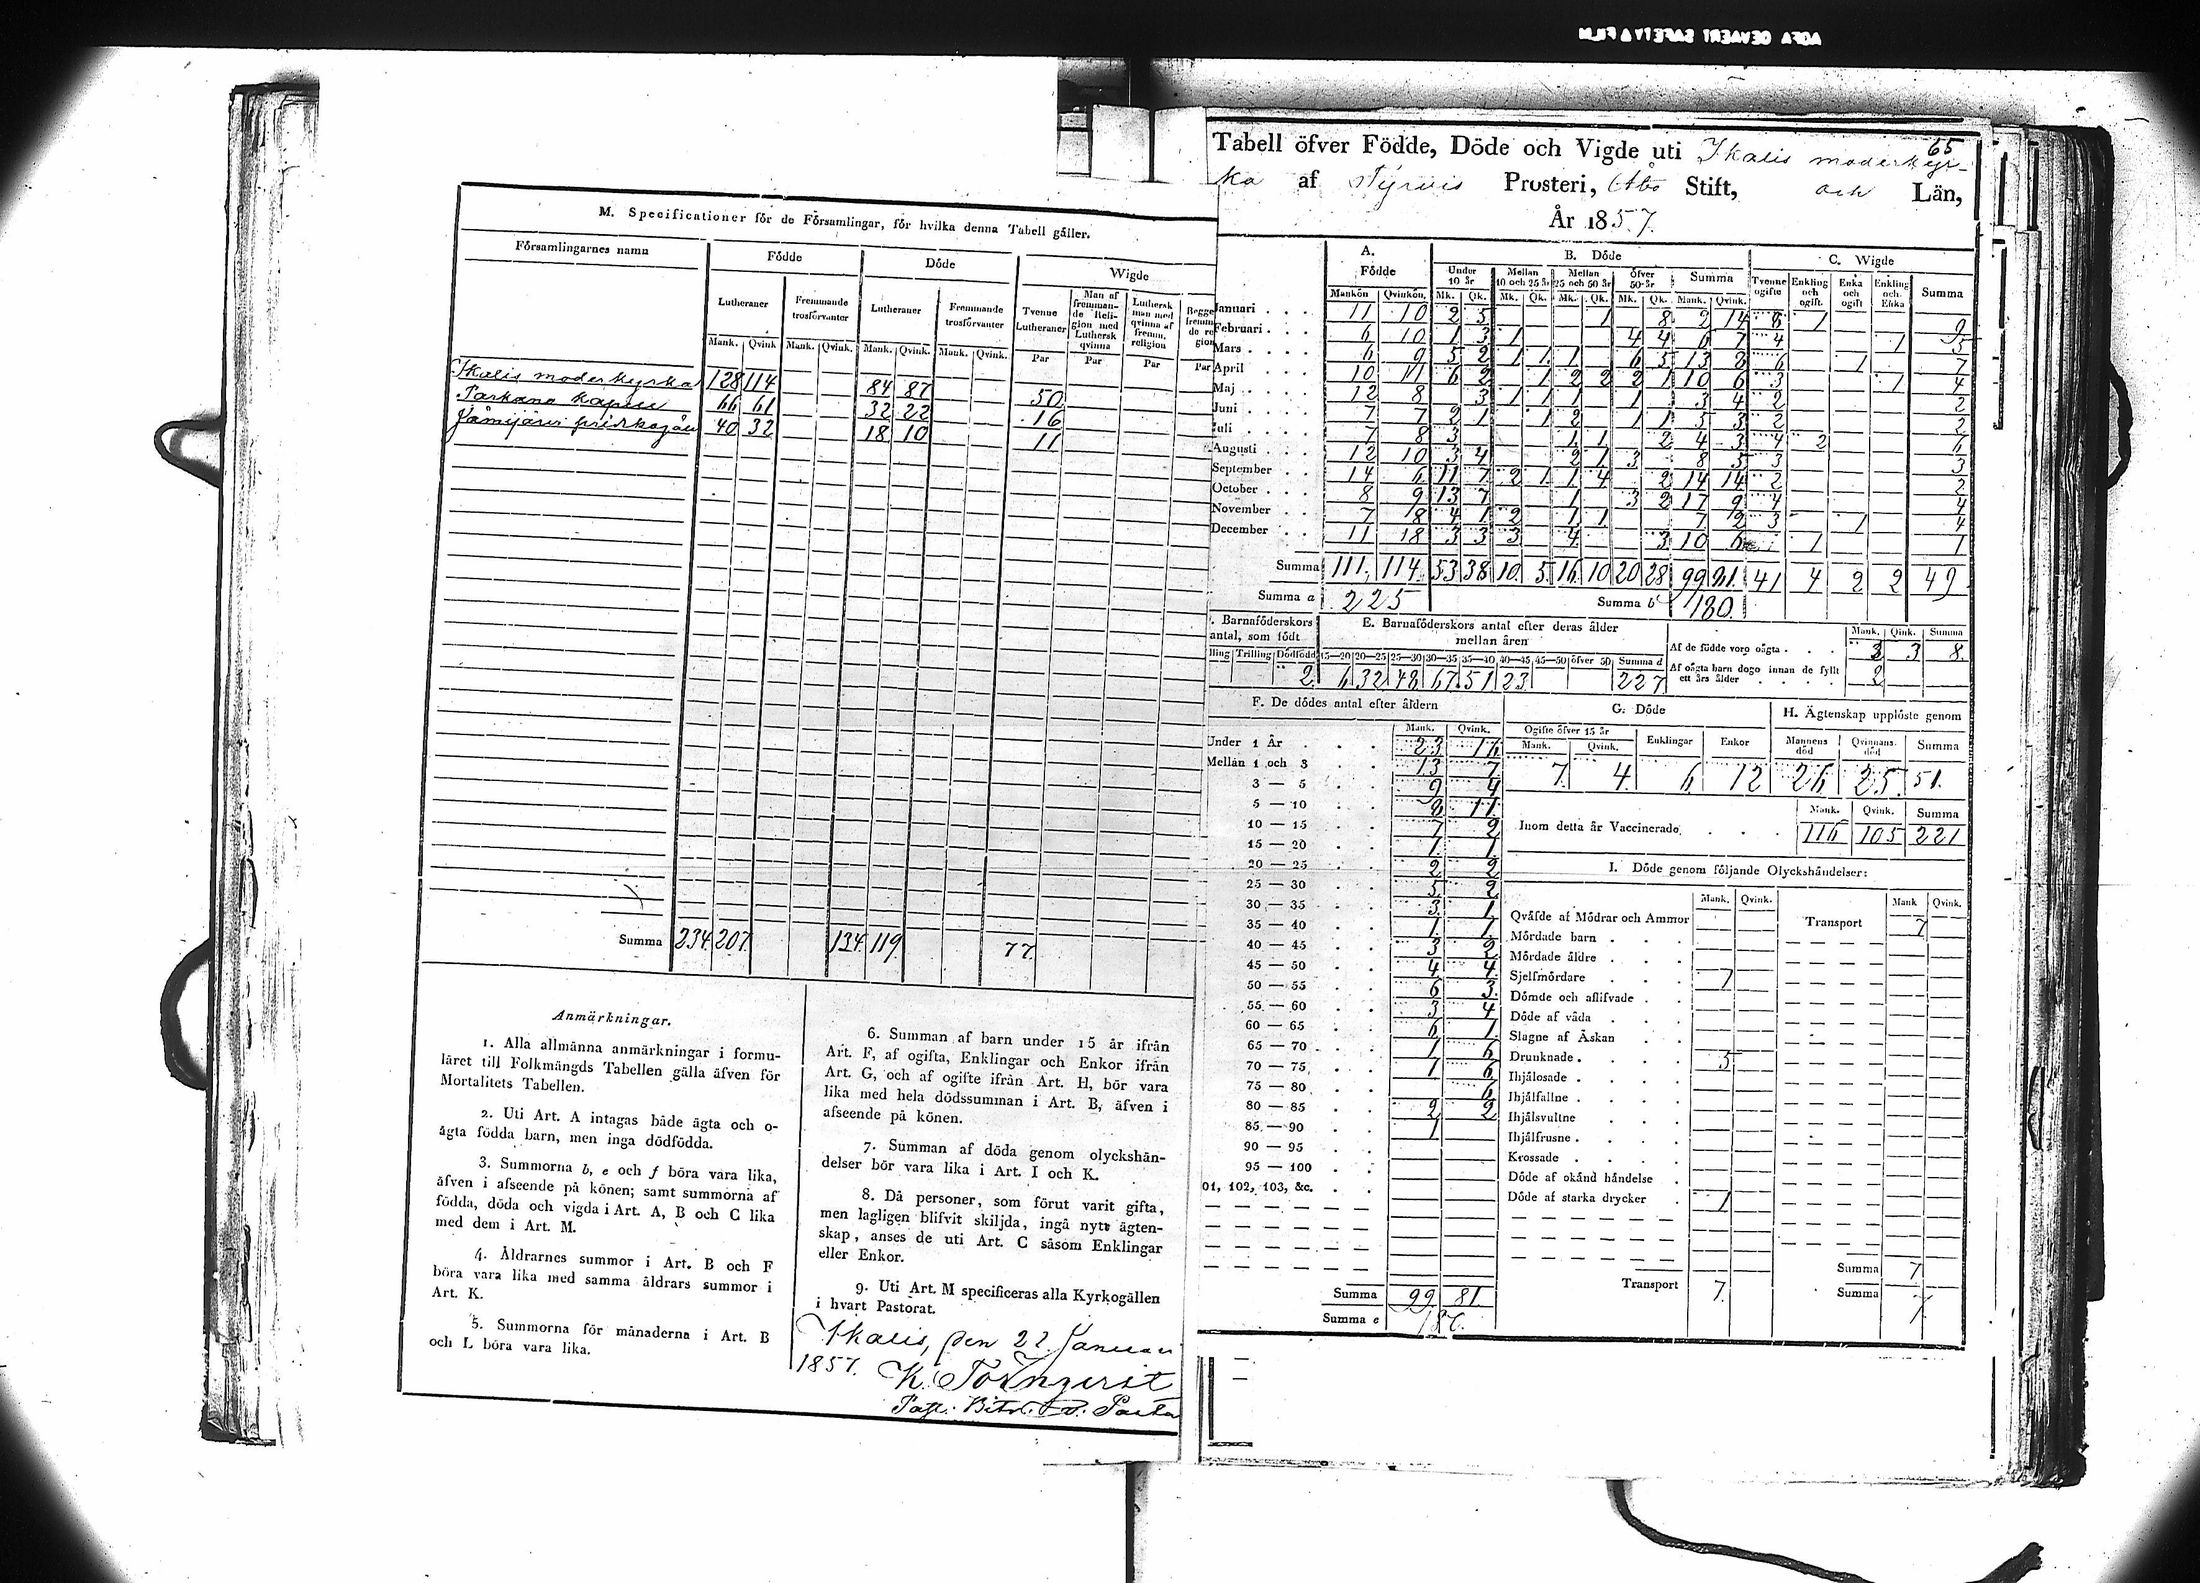 AGFA GEVAERT SAFETY FILM
M. Specificationer för de Församlingar, för hvilka denna Tabell gäller.
Församlingarnes namn
Födde
Döde
Wigde
Lutheraner
Fremmande trosförvanter
Lutheraner
Fremmande trosförvanter
Tvenne Lutheraner
Man af fremmande Religion med Luthersk qvinna
Luthersk man med qvinna af fremm. religion
Mank. Qvink. Mank. Qvink. Mank. Qvink. Mank. Qvink. Par Par Par Par
Ikalis moderkyrka 128 114 84 87 50
Parkano kapell 66 61 32 22 16
Jämijärvi 40 32 18 10 11
Summa 234 207. 134 119. 77.
Anmärkningar.
1. Alla allmänna anmärkningar i formu-
läret till Folkmängds Tabellen gälla äfven för
Mortalitets Tabellen.
2. Uti Art. A intagas både ägta och o-
ägta födda barn, men inga dödfödda.
3. Summorna b, e och f böra vara lika,
äfven i afseende på könen; samt summorna af
födda, döda och vigda i Art. A, B och C lika
med dem i Art. M.
4. Åldrarnes summor i Art. B och F
böra vara lika med samma åldrars summor i
Art. K.
5. Summorna för månaderna i Art. B
och L böra vara lika.
6. Summan af barn under 15 år ifrån
Art. F, af ogifta, Enklingar och Enkor ifrån
Art. G, och af ogifte ifrån Art. H, bör vara
lika med hela dödssumman i Art. B, äfven i
afseende på könen.
7. Summan af döda genom olyckshän-
delser bör vara lika i Art. I och K.
8. Då personer, som förut varit gifta,
men lagligen blifvit skiljda, ingå nytt ägten-
skap, anses de uti Art. C såsom Enklingar
eller Enkor.
9. Uti Art. M specificeras alla Kyrkogällen
i hvart Pastorat.
Ikalis, den 22. Januari
1857. K. Törnqvist
65
Tabell öfver Födde, Döde och Vigde uti Ikalis moderkyr-
ka af Tyrvis Prosteri, Åbo Stift, och Län,
År 1857.
A. Födde
B. Döde
C. Wigde
Under 10 år
Mellan 10 och 25 år
Mellan 25 och 50 år
Öfver 50 år
Summa
Tvenne ogifte
Enkling och ogift.
Enka och ogift
Enkling och Enka
Summa
Mankön Qvinkön. Mk. Qk. Mk. Qk. Mk. Qk. Mk. Qk. Mank. Qvink.
Januari 11 10 2 5 1 8 2 14 8 1 9
Februari 6 10 1 3 1 4 4 6 7 4 1 5
Mars 6 9 5 2 1 1 1 6 5 13 8 6 1 7
April 10 11 6 2 1 2 2 2 1 10 6 3 1 4
Maj 12 8 3 1 1 1 1 3 4 2 2
Juni 7 7 2 1 1 2 1 1 5 3 2 2
Juli 7 8 3 1 1 2 4 3 4 2 6
Augusti 12 10 3 4 2 1 3 8 5 3 3
September 14 6 11 7 2 1 1 4 2 14 14 2 2
October 8 9 13 7 1 3 2 17 9 4 4
November 7 8 4 1 2 1 1 7 2 3 1 4
December 11 18 3 3 3 4 3 10 6 1 1
Summa 111. 114. 53 38 10. 5 16 10 20 28 99 81. 41 4 2 2 49
Summa a 225 Summa b 180.
Barnaföderskors antal, som födt
lling Trilling Dödfödd
2
E. Barnaföderskors antal efter deras ålder
mellan åren
15—20 20—25 25—30 30—35 35—40 40—45 45—50 öfver 50 Summa d
6 32 48 67 51 23 227
Mank. Qink. Summa
Af de födde voro oägta 3 8.
Af oägta barn dogo innan de fyllt
ett års ålder 2
F. De dödes antal efter åldern
Mank. Qvink.
Under 1 År 23 16
Mellan 1 och 3 13 7
3 — 5 9 4
5 — 10 8 11
10 — 15 7 2
15 — 20 1 1
20 — 25 2 2
25 — 30 5 2
30 — 35 3 1
35 — 40 1 1
40 — 45 3 2
45 — 50 4 4
50 — 55 6 3
55 — 60 3 4
60 — 65 6 1
65 — 70 1 6
70 — 75 1 6
75 — 80 6
80 — 85 2 2
85 — 90 1
90 — 95
95 — 100
01, 102, 103, &c.
Summa 99 81.
Summa e 180.
G. Döde
Ogifte öfver 15 år
Mank. Qvink. Enklingar Enkor
7. 4. 6 12
H. Ägtenskap upplöste genom
Mannens död Qvinnans död Summa
26 25. 51.
Mank. Qvink. Summa
Inom detta år Vaccinerade 116 105 221
I. Döde genom följande Olyckshändelser:
Mank. Qvink. Mank Qvink.
Qväfde af Mödrar och Ammor
Mördade barn
Mördade äldre
Sjelfmördare 1
Dömde och aflifvade
Döde af våda
Slagne af Åskan
Drunknade 5
Ihjälosade
Ihjälfallne
Ihjälsvultne
Ihjälfrusne
Krossade
Döde af okänd händelse
Döde af starka drycker 1
Transport 7.
Transport 7
Summa 7
Summa 7.